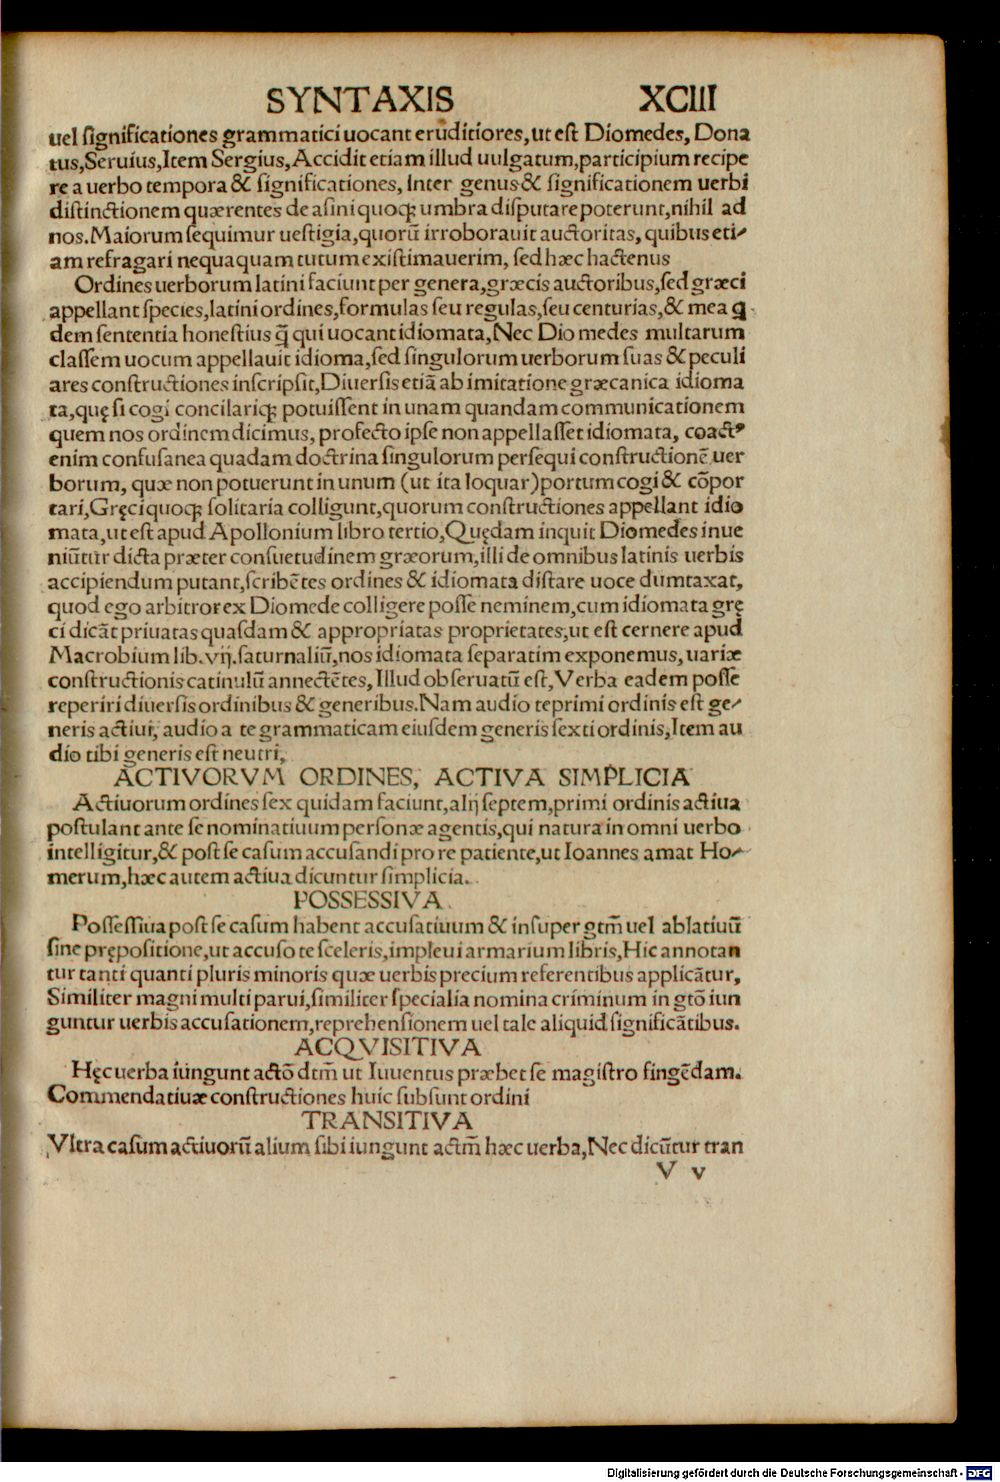 SYNTAXIS XCIII
uel significationes grammatici uocant eruditiores, ut est Diomedes, Dona
tus, Seruius, Item Sergius, Accidit etiam illud uulgatum, participium recipe
re a uerbo tempora & significationes, Inter genus & significationem uerbi
distinctionem quærentes de asini quoqꝫ umbra disputare poterunt, nihil ad
nos. Maiorum sequimur uestigia, quorũ irroborauit auctoritas, quibus eti⸗
am refragari nequaquam tutum existimauerim, sed hæc hactenus
Ordines uerborum latini faciunt per genera, græcis auctoribus, sed græci
appellant species, latini ordines, formulas seu regulas, seu centurias, & mea q̃
dem sententia honestius q̃ qui uocant idiomata, Nec Diomedes multarum
classem uocum appellauit idioma, sed singulorum uerborum suas & peculi
ares constructiones inscripsit, Diuersis etiã ab imitatione græcanica idioma
ta, quę si cogi conciliariqꝫ potuissent in unam quandam communicationem
quem nos ordinem dicimus, profecto ipse non appellasset idiomata, coactꝰ
enim confusanea quadam doctrina singulorum persequi constructionẽ uer
borum, quæ non potuerunt in unum (ut ita loquar) portum cogi & cõpor
tari, Gręci quoqꝫ solitaria colligunt, quorum constructiones appellant idio
mata, ut est apud Apollonium libro tertio, Quędam inquit Diomedes inue
niũtur dicta præter consuetudinem græorum, illi de omnibus latinis uerbis
accipiendum putant, scribẽtes ordines & idiomata distare uoce dumtaxat,
quod ego arbitror ex Diomede colligere posse neminem, cum idiomata grę
ci dicãt priuatas quasdam & appropriatas proprietates, ut est cernere apud
Macrobium lib. vij. saturnaliũ, nos idiomata separatim exponemus, uariæ
constructionis catinulũ annectẽtes, Illud obseruatũ est, Verba eadem posse
reperiri diuersis ordinibus & generibus. Nam audio te primi ordinis est ge⸗
neris actiui, audio a te grammaticam eiusdem generis sexti ordinis, Item au
dio tibi generis est neutri,
ACTIVORVM ORDINES, ACTIVA SIMPLICIA
Actiuorum ordines sex quidam faciunt, alij septem, primi ordinis actiua
postulant ante se nominatiuum personæ agentis, qui natura in omni uerbo
intelligitur, & post se casum accusandi pro re patiente, ut Ioannes amat Ho⸗
merum, hæc autem actiua dicuntur simplicia.
POSSESSIVA
Possessiua post se casum habent accusatiuum & insuper gtm̃ uel ablatiuũ
sine prępositione, ut accuso te sceleris, impleui armarium libris, Hic annotan
tur tanti quanti pluris minoris quæ uerbis precium referentibus applicãtur,
Similiter magni multi parui, similiter specialia nomina criminum in gtõ iun
guntur uerbis accusationem, reprehensionem uel tale aliquid significãtibus.
ACQVISITIVA
Hęc uerba iungunt actõ dtm̃ ut Iuuentus præbet se magistro fingẽdam.
Commendatiuæ constructiones huic subsunt ordini
TRANSITIVA
Vltra casum actiuorũ alium sibi iungunt actm̃ hæc uerba, Nec dicũtur tran
V v
Digitalisierung gefördert durch die Deutsche Forschungsgemeinschaft - DFG